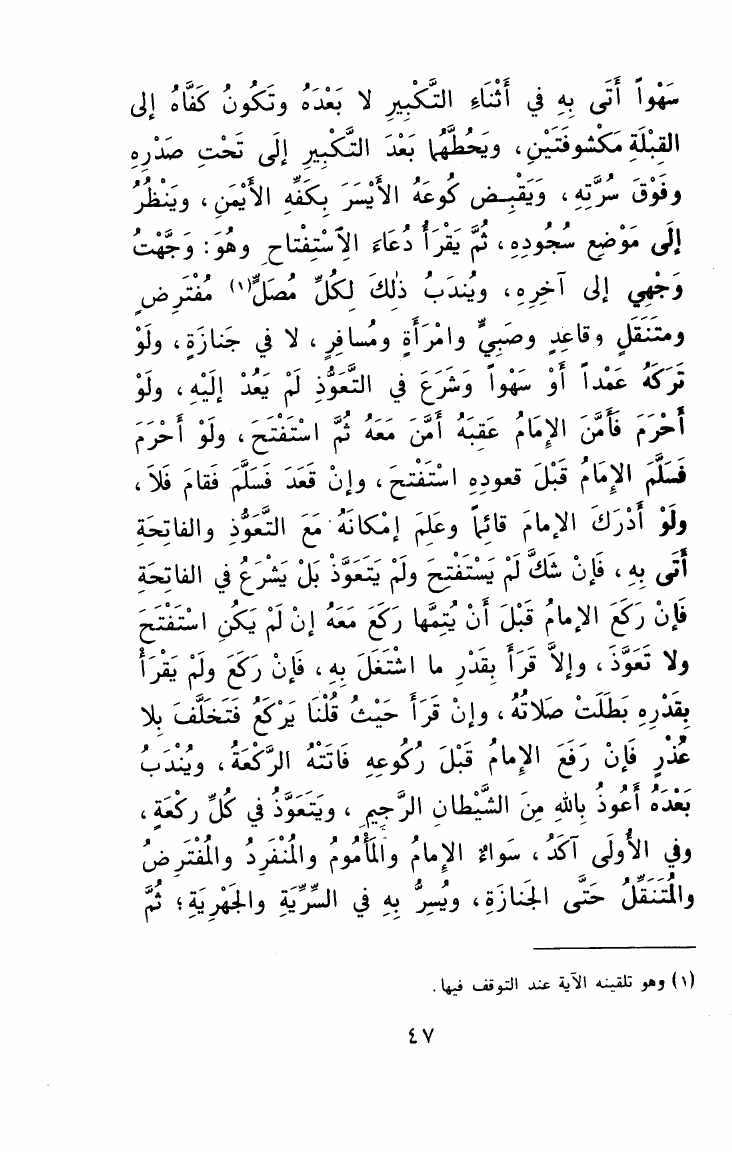 سَهْواً أَتَى بِهِ في أَثْنَاءِ التَّكْبِيرِ لا بَعْدَهُ وتَكُونُ كَفَّاهُ إلى
القِبْلَةِ مَكْشوفَتَيْنِ، ويَحُطَّهُما بَعْدَ التَّكْبِيرِ إلَى تَحْتِ صَدْرِهِ
وفَوْقَ سُرَّتِهِ، وَيَقْبِض كُوعَهُ الأَيْسَرَ بِكَفِّهِ الأَيْمَنِ، ويَنْظُرُ
إلَى مَوْضِعِ سُجُودِهِ، ثُمَّ يَقْرَأُ دُعَاءَ الِاسْتِفْتاحِ وهُوَ: وَجَّهْتُ
وَجْهِي إلى آخِرِهِ، ويُنْدَبُ ذٰلِكَ لِكُلِّ مُصَلٍّ(١) مُفْتَرِضٍ
ومتَنَفِّلٍ وقاعِدٍ وصَبِيٍّ وامْرَأَةٍ ومُسافِرٍ، لا في جَنازَةٍ، ولَوْ
تَرَكَهُ عَمْداً أَوْ سَهْواً وَشَرَعَ في التَّعَوُّذِ لَمْ يَعُدْ إلَيْهِ، ولَوْ
أَحْرَمَ فَأَمَّنَ الإمَامُ عَقِبَهُ أَمَّنَ مَعَهُ ثُمَّ اسْتَفْتَحَ، ولَوْ أَحْرَمَ
فَسَلَّمَ الإمَامُ قَبْلَ قعودِهِ اسْتَفْتحَ، وإنْ قَعَدَ فَسَلَّمَ فَقامَ فَلاَ،
ولَوْ أَدْرَكَ الإمامَ قائِماً وعَلِمَ إمْكانَهُ مَعَ التَّعَوُّذِ والفاتِحَةِ
أَتَى بِهِ، فَإنْ شَكَّ لَمْ يَسْتَفْتِحْ ولَمْ يَتَعَوَّذْ بَلْ يَشْرَعُ في الفاتِحَةِ
فَإنْ رَكَعَ الإمامُ قَبْلَ أَنْ يُتِمَّها رَكَعَ مَعَهُ إنْ لَمْ يَكُنِ اسْتَفْتَحَ
ولا تَعَوَّذَ، وإلاَّ قَرَأَ بِقَدْرِ ما اشْتَغَلَ بِهِ، فَإنْ رَكَعَ ولَمْ يَقْرَأْ
بِقَدْرِهِ بَطَلَتْ صَلاتُهُ، وإنْ قَرَأَ حَيْثُ قُلْنَا يَرْكَعُ فَتَخَلَّفَ بِلا
عُذْرٍ فَإنْ رَفَعَ الإمامُ قَبْلَ رُكُوعِهِ فَاتَتْهُ الرَّكْعَةُ، ويُنْدَبُ
بَعْدَهُ أَعُوذُ بِاللهِ مِنَ الشَّيْطانِ الرَّجِيمِ، ويَتَعَوَّذُ في كُلِّ ركْعَةٍ،
وفي الأُولَى آكَدُ، سَواءٌ الإمامُ والمَأْمُومُ والمُنْفَرِدُ والمُفْتَرِضُ
والمُتَنَفِّلُ حَتَّى الجَنازَةِ، ويُسِرُّ بِهِ في السِّرِّيَةِ والجَهْرِيَةِ؛ ثُمَّ
(١) وهو تلقينه الآية عند التوقف فيها.
٤٧